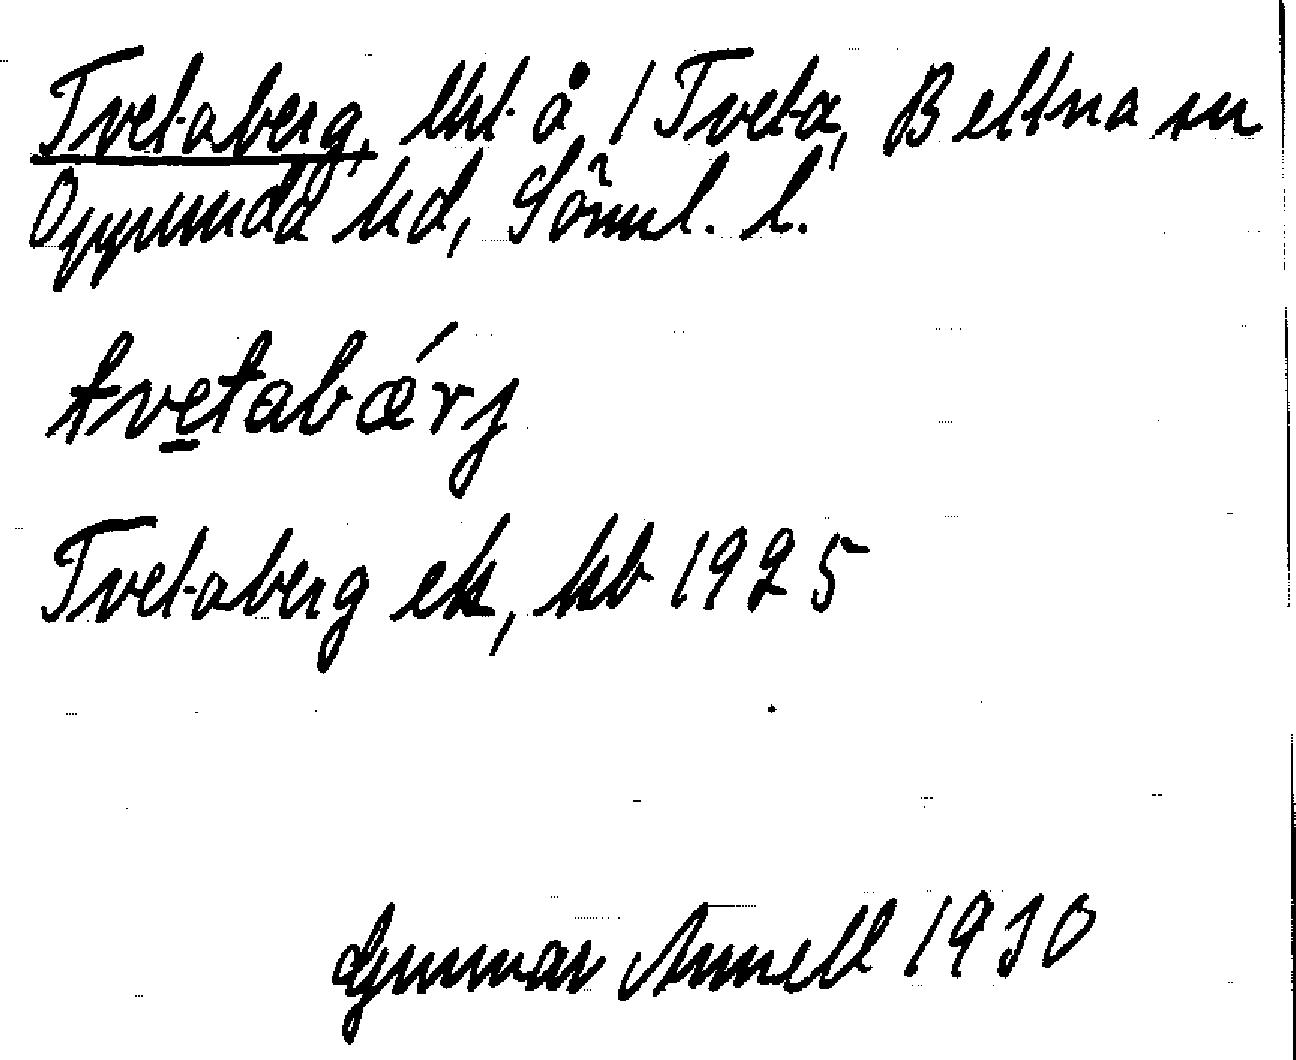 Tvetaberg, lht å 1 Tveta, Bettna sn
Oppunda hd, Söml. l.
tvetabǽrj
Tvetaberg ek, kb 1925
Gunnar Annell 1930